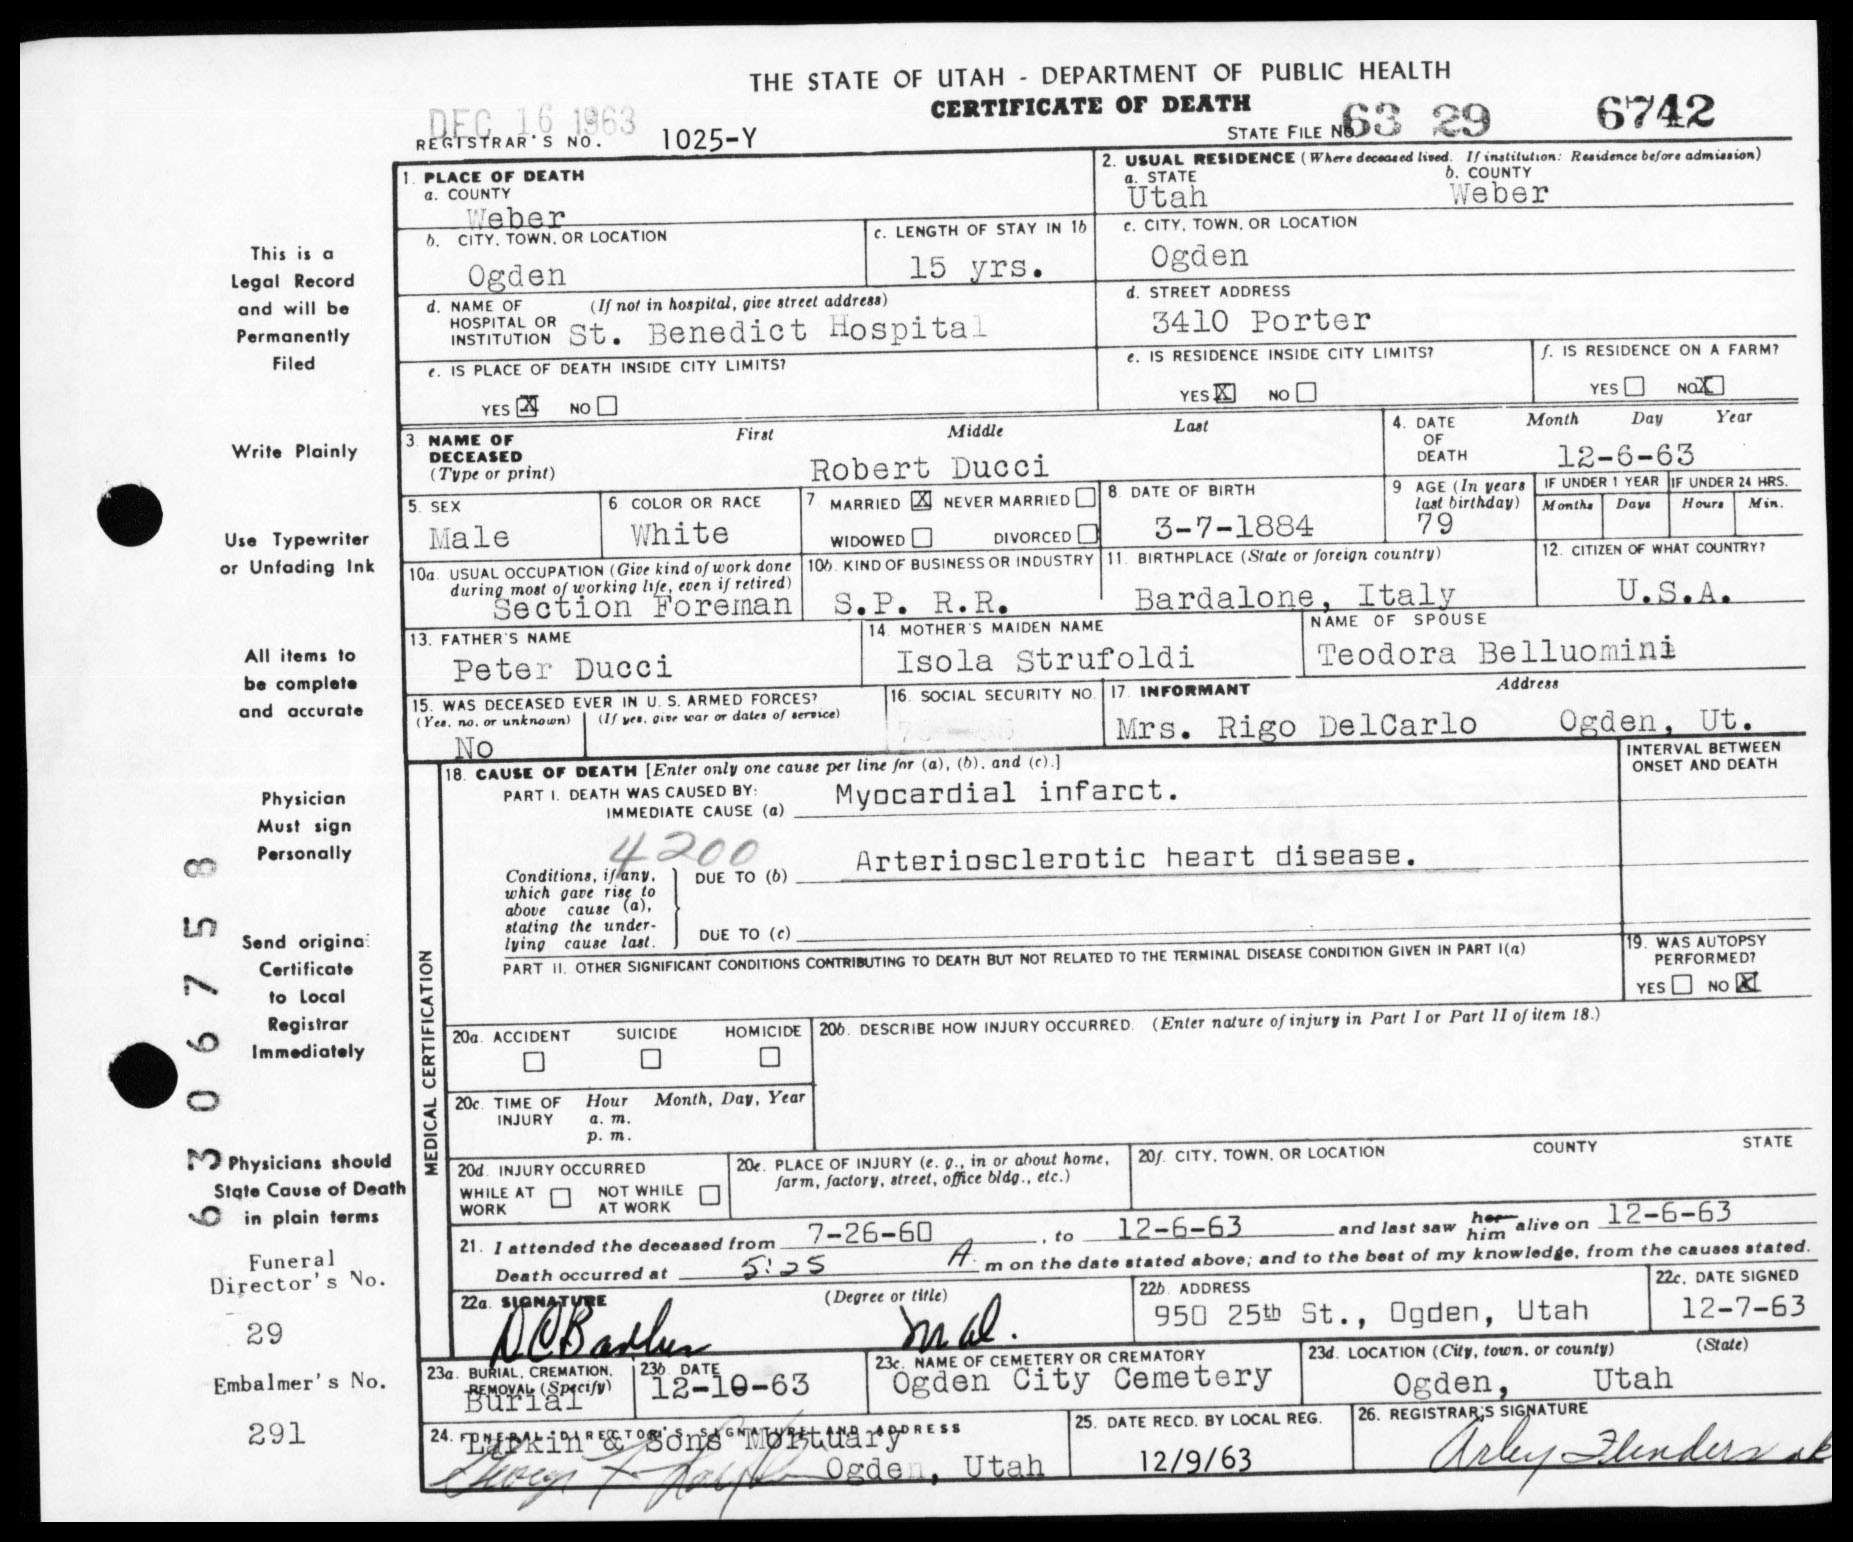 THE STATE OF UTAH - DEPARTMENT OF PUBLIC HEALTH
CERTIFICATE OF DEATH
DEC 16 1963
REGISTRAR'S NO. 1025-Y
STATE FILE NO. 63 29 6742
1. PLACE OF DEATH
a. COUNTY
Weber
2. USUAL RESIDENCE (Where deceased lived. If institution: Residence before admission)
a. STATE b. COUNTY
Utah Weber
b. CITY, TOWN, OR LOCATION
Ogden
c. LENGTH OF STAY IN 1b
15 yrs.
c. CITY, TOWN, OR LOCATION
Ogden
d. NAME OF HOSPITAL OR INSTITUTION (If not in hospital, give street address)
St. Benedict Hospital
d. STREET ADDRESS
3410 Porter
e. IS PLACE OF DEATH INSIDE CITY LIMITS?
YES X NO
e. IS RESIDENCE INSIDE CITY LIMITS?
YES X NO
f. IS RESIDENCE ON A FARM?
YES NO X
3. NAME OF DECEASED (Type or print)
First Middle Last
Robert Ducci
4. DATE OF DEATH
Month Day Year
12-6-63
5. SEX
Male
6. COLOR OR RACE
White
7. MARRIED X NEVER MARRIED
WIDOWED DIVORCED
8. DATE OF BIRTH
3-7-1884
9. AGE (In years last birthday)
79
IF UNDER 1 YEAR
Months Days
IF UNDER 24 HRS.
Hours Min.
10a. USUAL OCCUPATION (Give kind of work done during most of working life, even if retired)
Section Foreman
10b. KIND OF BUSINESS OR INDUSTRY
S.P. R.R.
11. BIRTHPLACE (State or foreign country)
Bardalone, Italy
12. CITIZEN OF WHAT COUNTRY?
U.S.A.
13. FATHER'S NAME
Peter Ducci
14. MOTHER'S MAIDEN NAME
Isola Strufoldi
NAME OF SPOUSE
Teodora Belluomini
15. WAS DECEASED EVER IN U. S. ARMED FORCES?
(Yes, no, or unknown) (If yes, give war or dates of service)
No
16. SOCIAL SECURITY NO.
17. INFORMANT Address
Mrs. Rigo DelCarlo Ogden, Ut.
MEDICAL CERTIFICATION
18. CAUSE OF DEATH [Enter only one cause per line for (a), (b), and (c).]
INTERVAL BETWEEN ONSET AND DEATH
PART I. DEATH WAS CAUSED BY:
IMMEDIATE CAUSE (a) Myocardial infarct.
4200
Conditions, if any, which gave rise to above cause (a), stating the underlying cause last.
DUE TO (b) Arteriosclerotic heart disease.
DUE TO (c)
PART II. OTHER SIGNIFICANT CONDITIONS CONTRIBUTING TO DEATH BUT NOT RELATED TO THE TERMINAL DISEASE CONDITION GIVEN IN PART I(a)
19. WAS AUTOPSY PERFORMED?
YES NO X
20a. ACCIDENT SUICIDE HOMICIDE
20b. DESCRIBE HOW INJURY OCCURRED. (Enter nature of injury in Part I or Part II of item 18.)
20c. TIME OF INJURY Hour Month, Day, Year
a. m.
p. m.
20d. INJURY OCCURRED
WHILE AT WORK NOT WHILE AT WORK
20e. PLACE OF INJURY (e. g., in or about home, farm, factory, street, office bldg., etc.)
20f. CITY, TOWN, OR LOCATION COUNTY STATE
21. I attended the deceased from 7-26-60, to 12-6-63 and last saw her him alive on 12-6-63
Death occurred at 5:25 A. m on the date stated above; and to the best of my knowledge, from the causes stated.
22a. SIGNATURE (Degree or title)
M.D.
22b. ADDRESS
950 25th St., Ogden, Utah
22c. DATE SIGNED
12-7-63
23a. BURIAL, CREMATION, REMOVAL (Specify)
Burial
23b. DATE
12-10-63
23c. NAME OF CEMETERY OR CREMATORY
Ogden City Cemetery
23d. LOCATION (City, town, or county) (State)
Ogden, Utah
24. FUNERAL DIRECTOR'S SIGNATURE AND ADDRESS
Larkin & Sons Mortuary
Ogden, Utah
25. DATE RECD. BY LOCAL REG.
12/9/63
26. REGISTRAR'S SIGNATURE
Arley Flinders
This is a
Legal Record
and will be
Permanently
Filed
Write Plainly
Use Typewriter
or Unfading Ink
All items to
be complete
and accurate
Physician
Must sign
Personally
Send original
Certificate
to Local
Registrar
Immediately
Physicians should
State Cause of Death
in plain terms
Funeral
Director's No.
29
Embalmer's No.
291
6306758